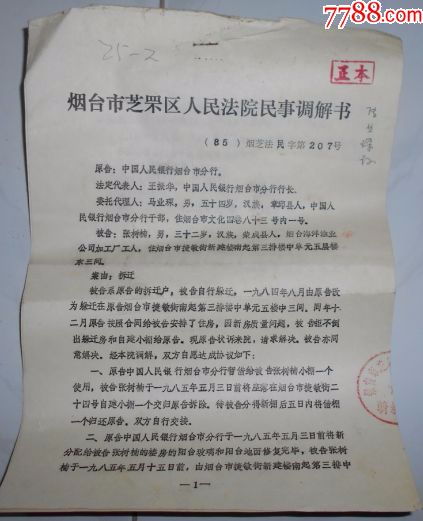 7788.com
25-2
正本
烟台市芝罘区人民法院民事调解书
(85)烟芝法民字第207号
原告:中国人民银行烟台市分行。
法定代表人:王振华,中国人民银行烟台市分行行长。
委托代理人:马业琛,男,五十四岁,汉族,章邱县人,中国人
民银行烟台市分行干部,住烟台市文化四巷八十三号内一号。
被告:张树楠,男,三十二岁,汉族,荣成县人,烟台海洋渔业
公司加工厂工人,住烟台市捷敏街新建楼南起第三排楼中单元五层楼
东三间。
案由:拆迁
被告系原告的拆迁户,被告自行躲迁,一九八四年八月由原告改
为躲迁在原告烟台市捷敏街南起第三排楼中单元五楼中三间。同年十
二月原告按照合同给被告安排了住房,因新房质量问题,被告拒不倒
出躲迁房和自建小棚给原告。现原告状诉来院,请求解决。被告亦同
意解决。经本院调解,双方自愿达成协议如下:
一、原告中国人民银行烟台市分行暂借给被告张树楠小棚一个
使用,被告张树楠于一九八五年五月三日前将座落在烟台市捷敏街二
十四号自建小棚一个交归原告拆除。待被告分得新棚后五日内将借棚
一个归还原告。双方自行交接。
二、原告中国人民银行烟台市分行于一九八五年五月三日前将新
分配给被告张树楠的楼房的阳台玻璃和阳台地面修复完毕,被告张树
楠于一九八五年五月十五日前,由烟台市捷敏街新建楼南起第三排中
—1—